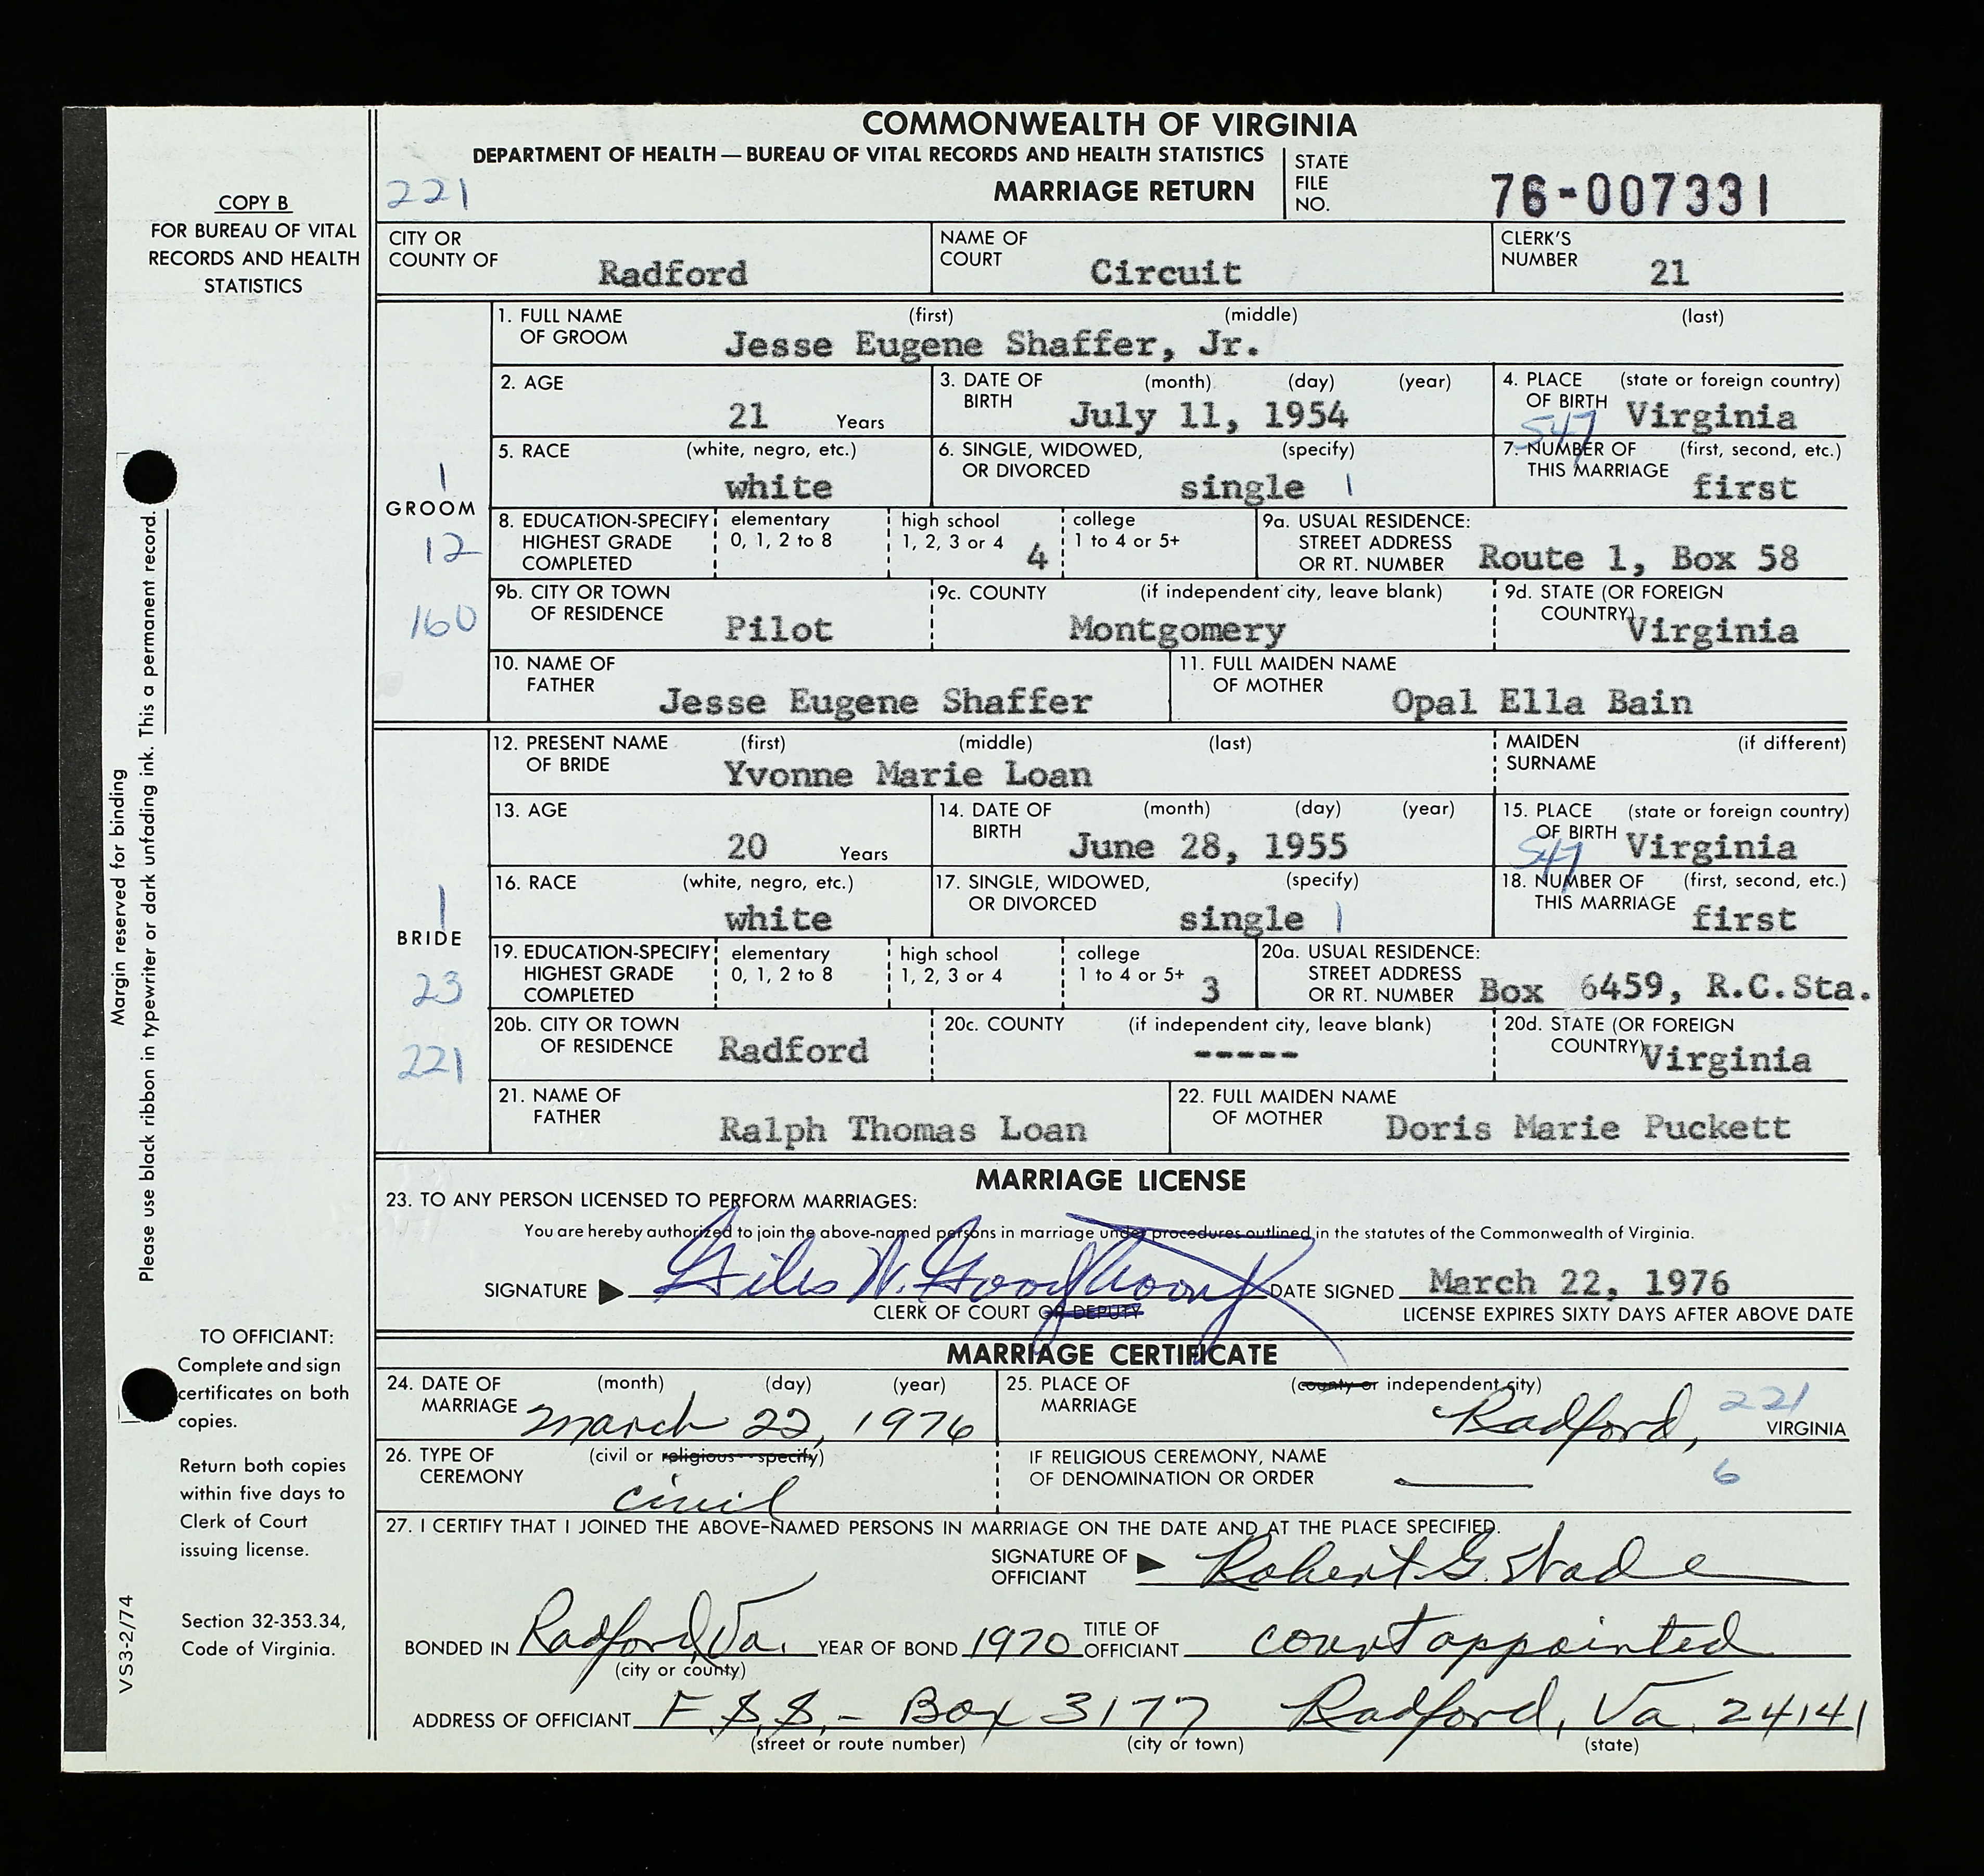 COMMONWEALTH OF VIRGINIA
DEPARTMENT OF HEALTH — BUREAU OF VITAL RECORDS AND HEALTH STATISTICS
221
MARRIAGE RETURN
STATE FILE NO. 76-007331
COPY B
FOR BUREAU OF VITAL
RECORDS AND HEALTH
STATISTICS
CITY OR COUNTY OF Radford
NAME OF COURT Circuit
CLERK'S NUMBER 21
GROOM
1
12
160
1. FULL NAME OF GROOM (first) (middle) (last)
Jesse Eugene Shaffer, Jr.
2. AGE 21 Years
3. DATE OF BIRTH (month) (day) (year) July 11, 1954
4. PLACE OF BIRTH (state or foreign country) Virginia
547
5. RACE (white, negro, etc.) white
6. SINGLE, WIDOWED, OR DIVORCED (specify) single 1
7. NUMBER OF THIS MARRIAGE (first, second, etc.) first
8. EDUCATION-SPECIFY HIGHEST GRADE COMPLETED elementary 0, 1, 2 to 8 high school 1, 2, 3 or 4 4 college 1 to 4 or 5+
9a. USUAL RESIDENCE: STREET ADDRESS OR RT. NUMBER Route 1, Box 58
9b. CITY OR TOWN OF RESIDENCE Pilot
9c. COUNTY (if independent city, leave blank) Montgomery
9d. STATE (OR FOREIGN COUNTRY) Virginia
10. NAME OF FATHER Jesse Eugene Shaffer
11. FULL MAIDEN NAME OF MOTHER Opal Ella Bain
BRIDE
1
23
221
12. PRESENT NAME OF BRIDE (first) (middle) (last) Yvonne Marie Loan
MAIDEN SURNAME (if different)
13. AGE 20 Years
14. DATE OF BIRTH (month) (day) (year) June 28, 1955
15. PLACE OF BIRTH (state or foreign country) Virginia
547
16. RACE (white, negro, etc.) white
17. SINGLE, WIDOWED, OR DIVORCED (specify) single 1
18. NUMBER OF THIS MARRIAGE (first, second, etc.) first
19. EDUCATION-SPECIFY HIGHEST GRADE COMPLETED elementary 0, 1, 2 to 8 high school 1, 2, 3 or 4 college 1 to 4 or 5+ 3
20a. USUAL RESIDENCE: STREET ADDRESS OR RT. NUMBER Box 6459, R.C.Sta.
20b. CITY OR TOWN OF RESIDENCE Radford
20c. COUNTY (if independent city, leave blank) -----
20d. STATE (OR FOREIGN COUNTRY) Virginia
21. NAME OF FATHER Ralph Thomas Loan
22. FULL MAIDEN NAME OF MOTHER Doris Marie Puckett
MARRIAGE LICENSE
23. TO ANY PERSON LICENSED TO PERFORM MARRIAGES:
You are hereby authorized to join the above-named persons in marriage under procedures outlined in the statutes of the Commonwealth of Virginia.
SIGNATURE Giles W. DATE SIGNED March 22, 1976
CLERK OF COURT OR DEPUTY
LICENSE EXPIRES SIXTY DAYS AFTER ABOVE DATE
MARRIAGE CERTIFICATE
24. DATE OF MARRIAGE (month) (day) (year) March 22, 1976
25. PLACE OF MARRIAGE (county or independent city) Radford, VIRGINIA
221
26. TYPE OF CEREMONY (civil or religious--specify) civil
IF RELIGIOUS CEREMONY, NAME OF DENOMINATION OR ORDER
6
27. I CERTIFY THAT I JOINED THE ABOVE-NAMED PERSONS IN MARRIAGE ON THE DATE AND AT THE PLACE SPECIFIED.
SIGNATURE OF OFFICIANT Robert G.
BONDED IN Radford, Va. YEAR OF BOND 1970 TITLE OF OFFICIANT court appointed
(city or county)
ADDRESS OF OFFICIANT F.S.S. - Box 3177 Radford, Va. 24141
(street or route number) (city or town) (state)
Margin reserved for binding
Please use black ribbon in typewriter or dark unfading ink. This a permanent record.
TO OFFICIANT:
Complete and sign
certificates on both
copies.
Return both copies
within five days to
Clerk of Court
issuing license.
Section 32-353.34,
Code of Virginia.
VS3-2/74